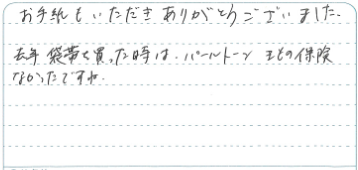 お手紙もいただきありがとうございました。
去年袋帯を買った時は、パールトーン までの保険
なかったですね。